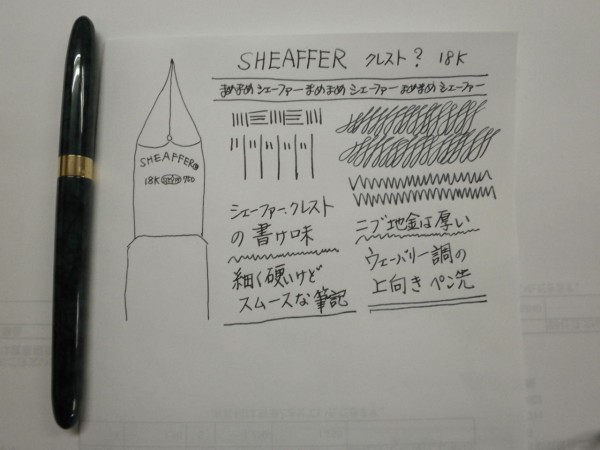 SHEAFFER クレスト? 18K
まめまめ シェーファー まめまめ シェーファー まめまめ シェーファー
SHEAFFER
18K 750
シェーファー、クレスト
の書け味
細く硬いけど
スムースな筆記
ニブ地金は厚い
ウェーバリー調の
上向きペン先